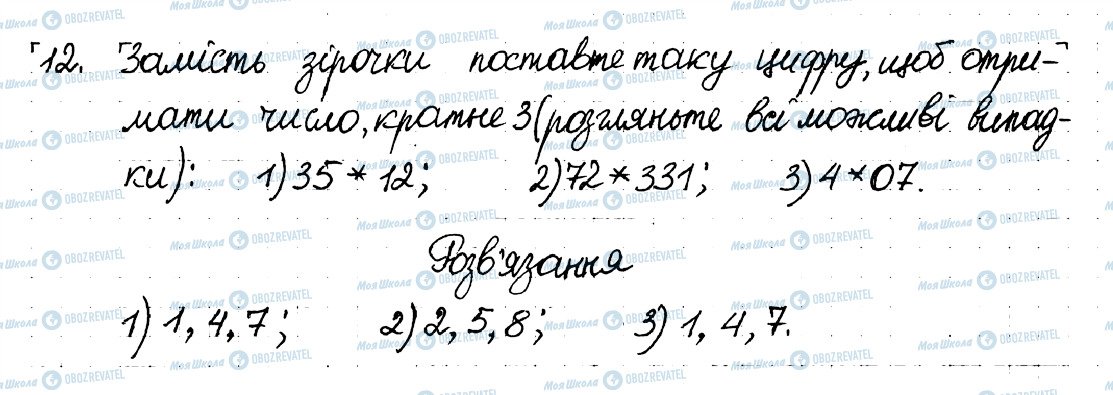 12. Замість зірочки поставте таку цифру, щоб отри-
мати число, кратне 3 (розгляньте всі можливі випад-
ки): 1) 35 * 12; 2) 72 * 331; 3) 4 * 07.
Розв'язання
1) 1, 4, 7; 2) 2, 5, 8; 3) 1, 4, 7.